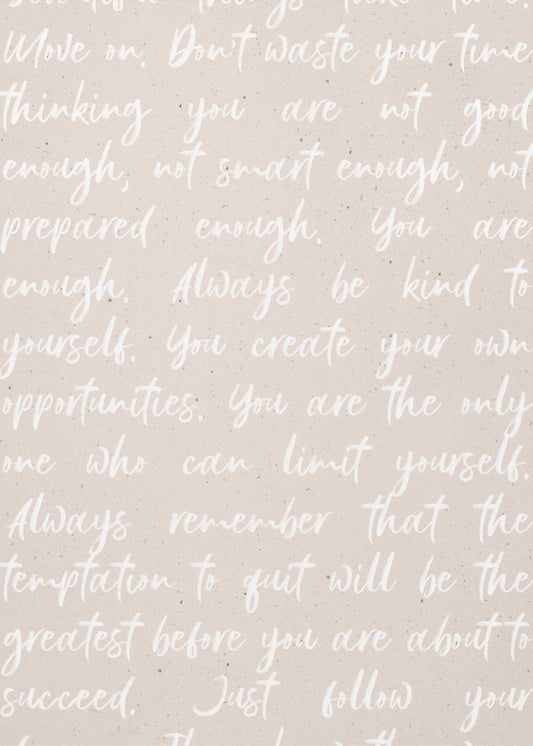 things take time.
Move on. Don't waste your time
thinking you are not good
enough, not smart enough, not
prepared enough. You are
enough. Always be kind to
yourself. You create your own
opportunities. You are the only
one who can limit yourself.
Always remember that the
temptation to quit will be the
greatest before you are about to
succeed. Just follow your